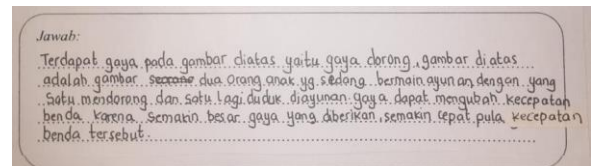 Jawab:
Terdapat gaya pada gambar diatas yaitu gaya dorong, gambar diatas
adalah gambar dua orang anak yg sedang bermain ayunan dengan yang
Satu mendorong dan satu lagi duduk diayunan gaya dapat mengubah kecepatan
benda karena semakin besar gaya yang diberikan, semakin cepat pula kecepatan
benda tersebut.